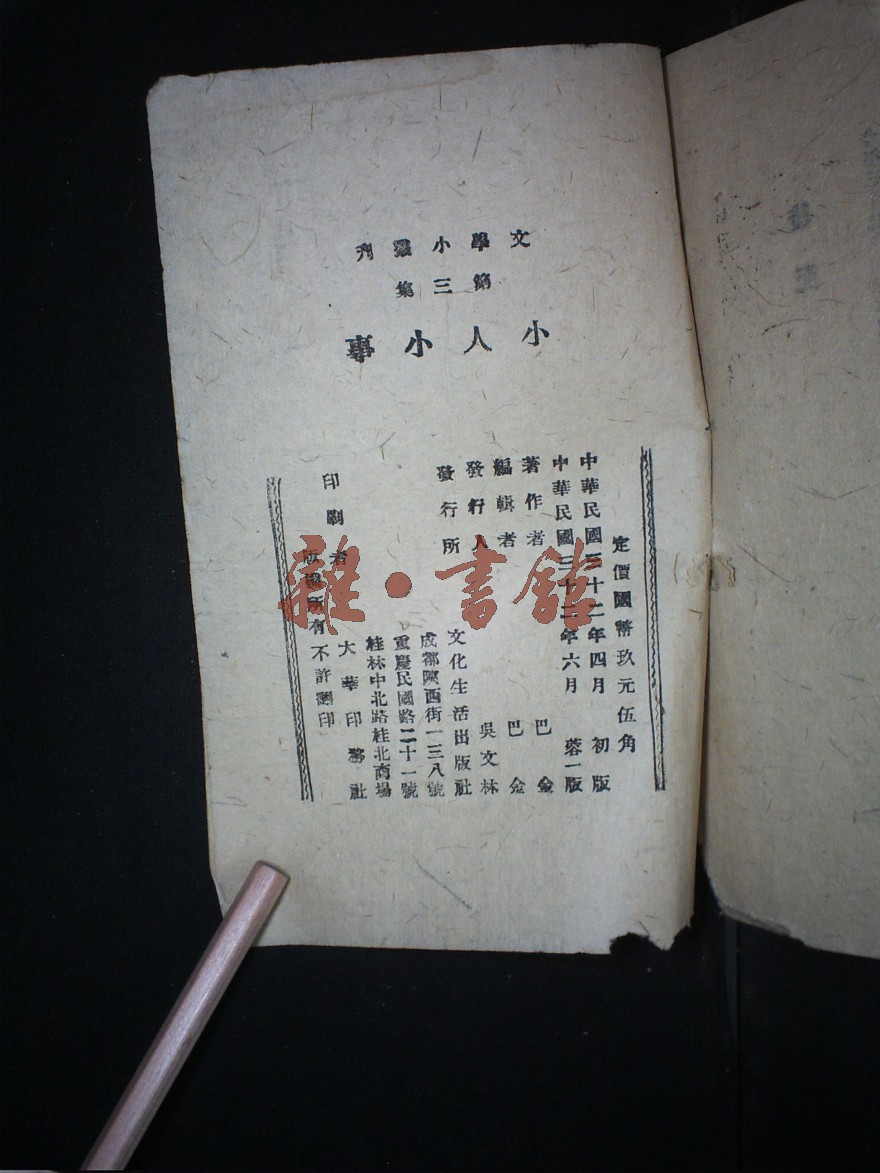 文學小叢刊
第三集
小人小事
定價國幣玖元伍角
中華民國三十二年四月 初版
中華民國三十二年六月 蓉一版
著作者 巴金
編輯者 巴金
發行人 吳文林
發行所 文化生活出版社
成都陝西街一三八號
重慶民國路二十一號
桂林中北路桂北商場
印刷者 大華印務社
版權所有不許翻印
雜·書館